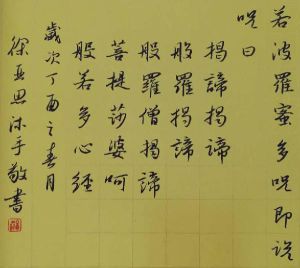 若波羅蜜多咒即說
咒曰
揭諦揭諦
般羅揭諦
般羅僧揭諦
菩提莎婆呵
般若多心經
歲次丁酉之春月
徐亚思沐手敬書